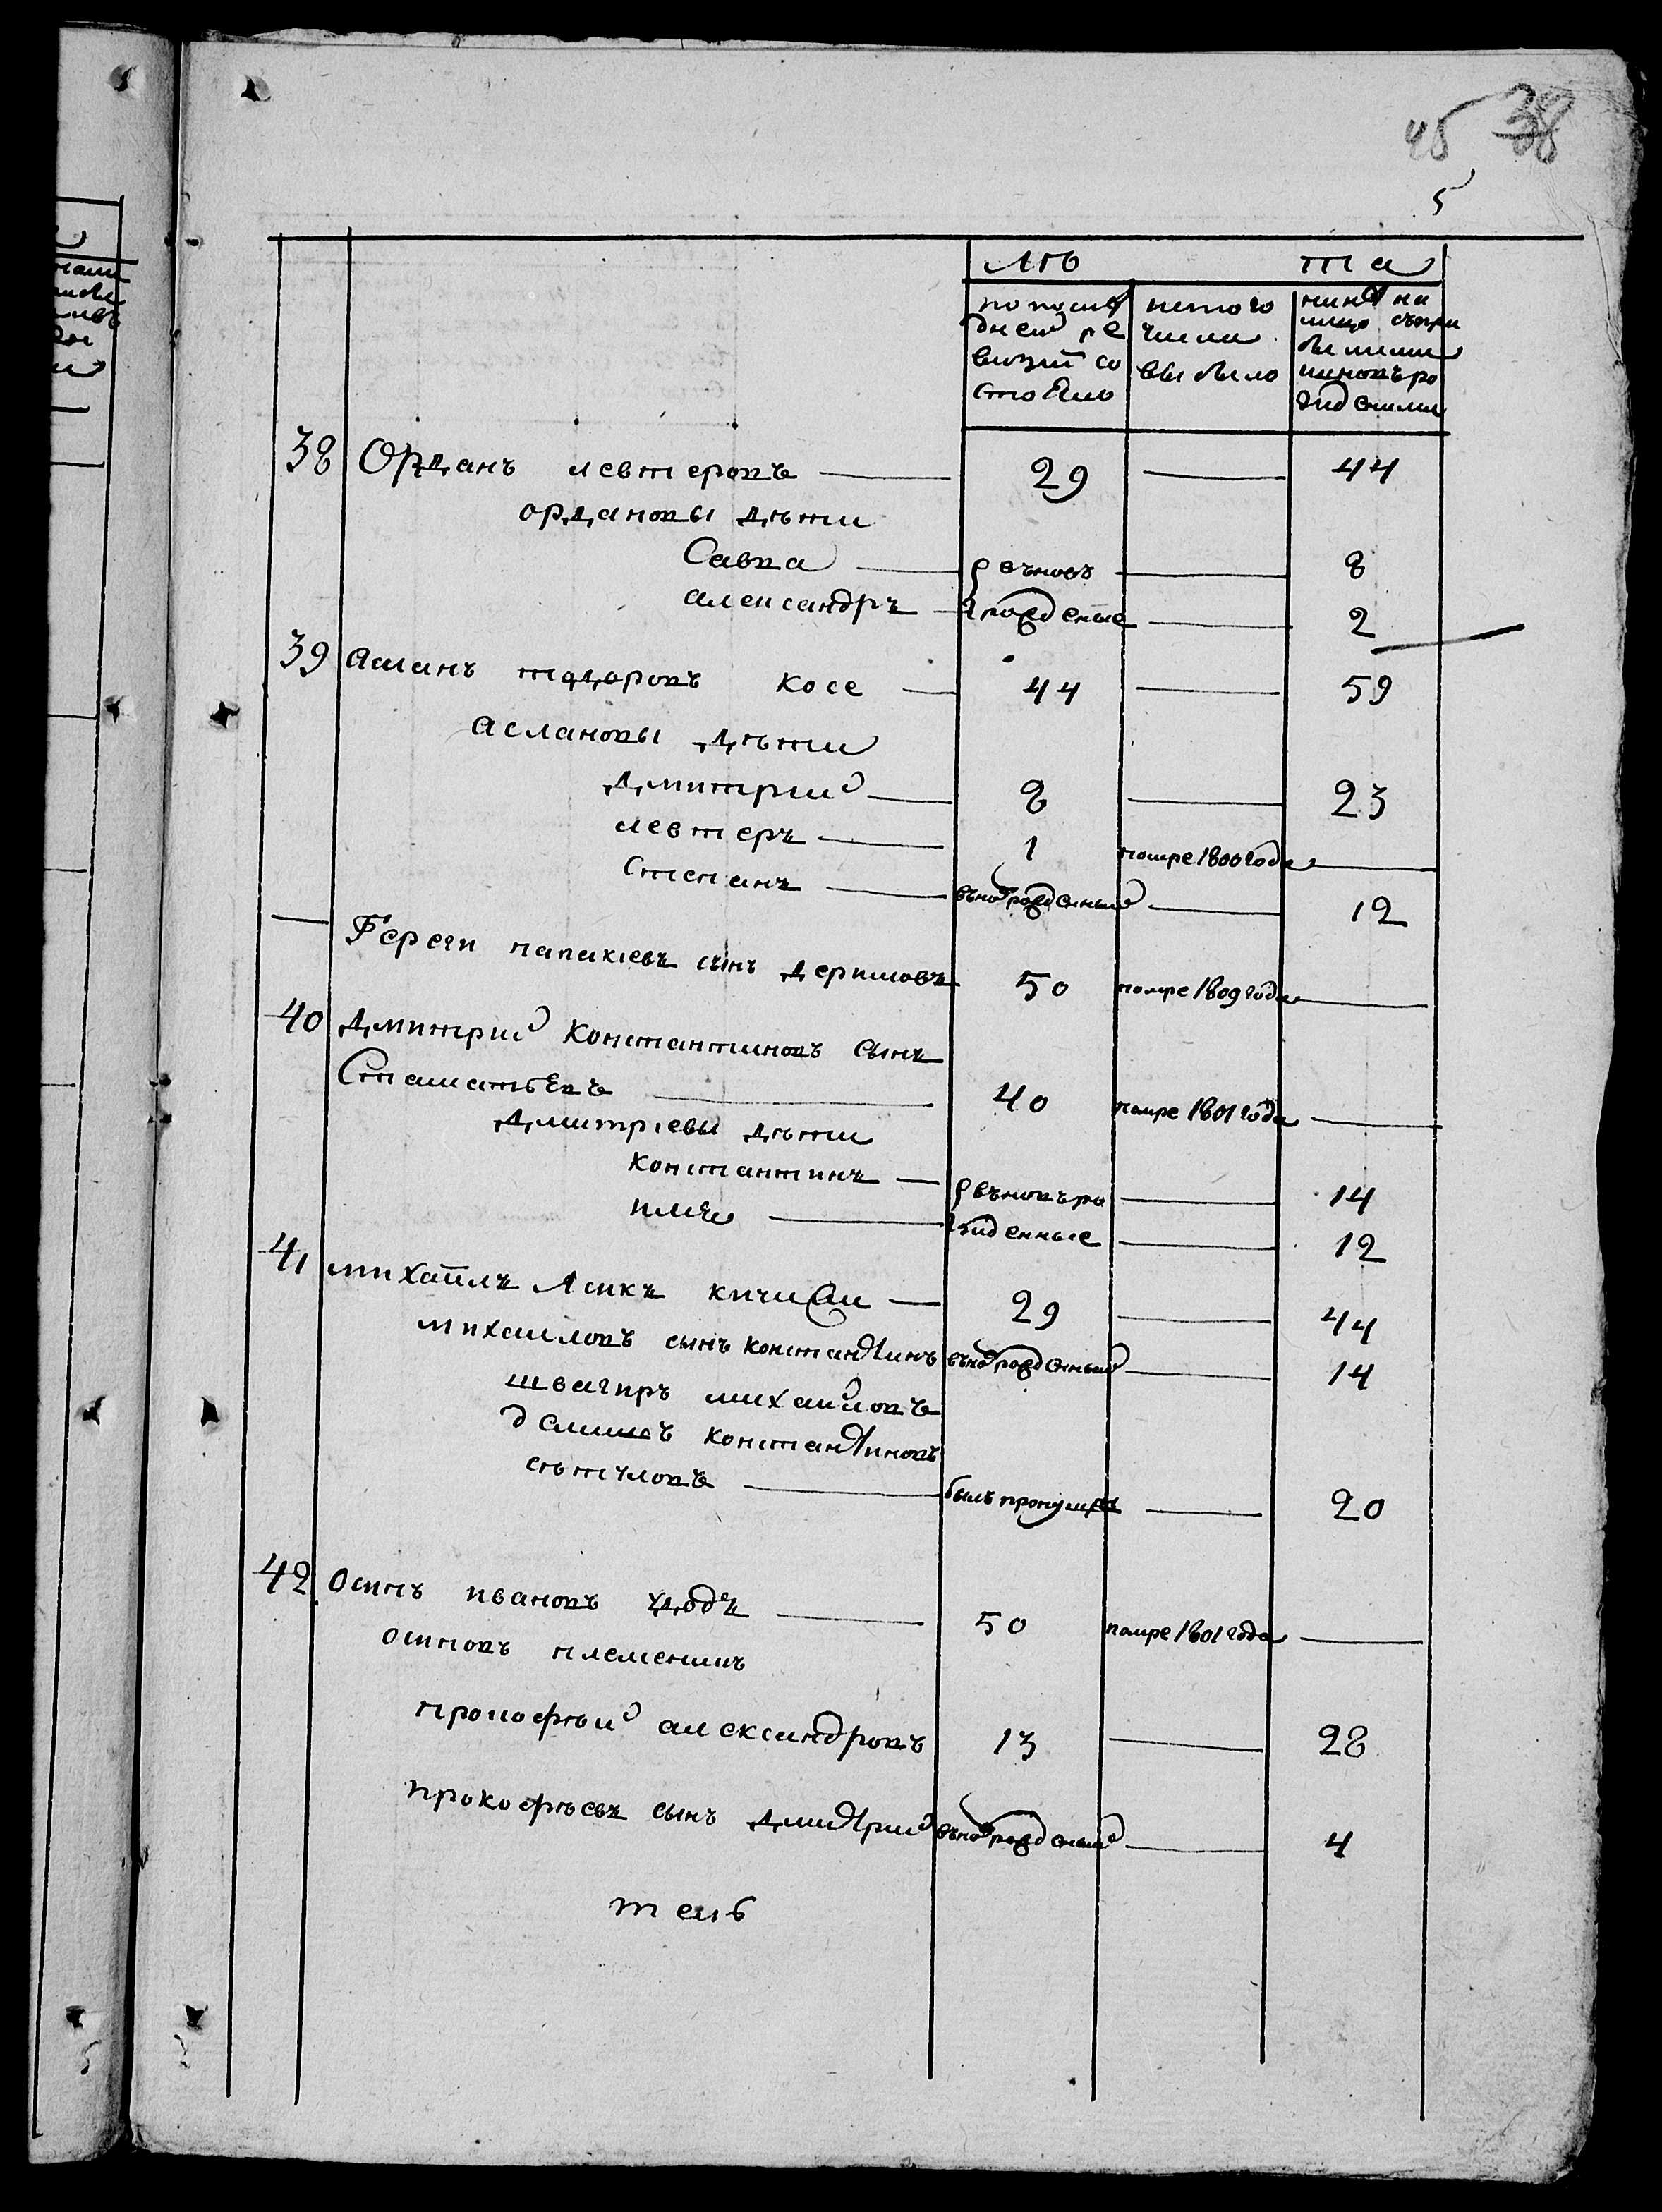 45 38
5
лѣ та
по послѣ
дней ре
визіи со
стояло
ис того
числа
выбыло
нинѣ на
лицо съ при
былими
и новъ ро
жденими
38 Орданъ левтеровъ 29 44
ордановы дѣти
Савва 8
александръ 2
въновъ
рожденые
39 Асланъ тодоровъ косе 44 59
Аслановы дѣти
дмитрий 8 23
левтеръ 1 помре 1800 года
степанъ въновъ рожденный 12
папакіевъ сынъ 50 помре 1809 года
40 дмитрий константиновъ сынъ
Стаматьевъ 40 помре 1801 года
дмитріевы дѣти
константинъ въновъ ро 14
илья жденные 12
41 михаилъ 29 44
михаиловъ сынъ константинъ въновъ рожденный 14
швагиръ михаиловъ
константиновъ
былъ пропущен 20
42 осипъ ивановъ 50 помре 1801 года
осиповъ племенникъ
прокофѣй александровъ 13 28
прокофѣевъ сынъ дмитрий въновъ рожденый 4
тель